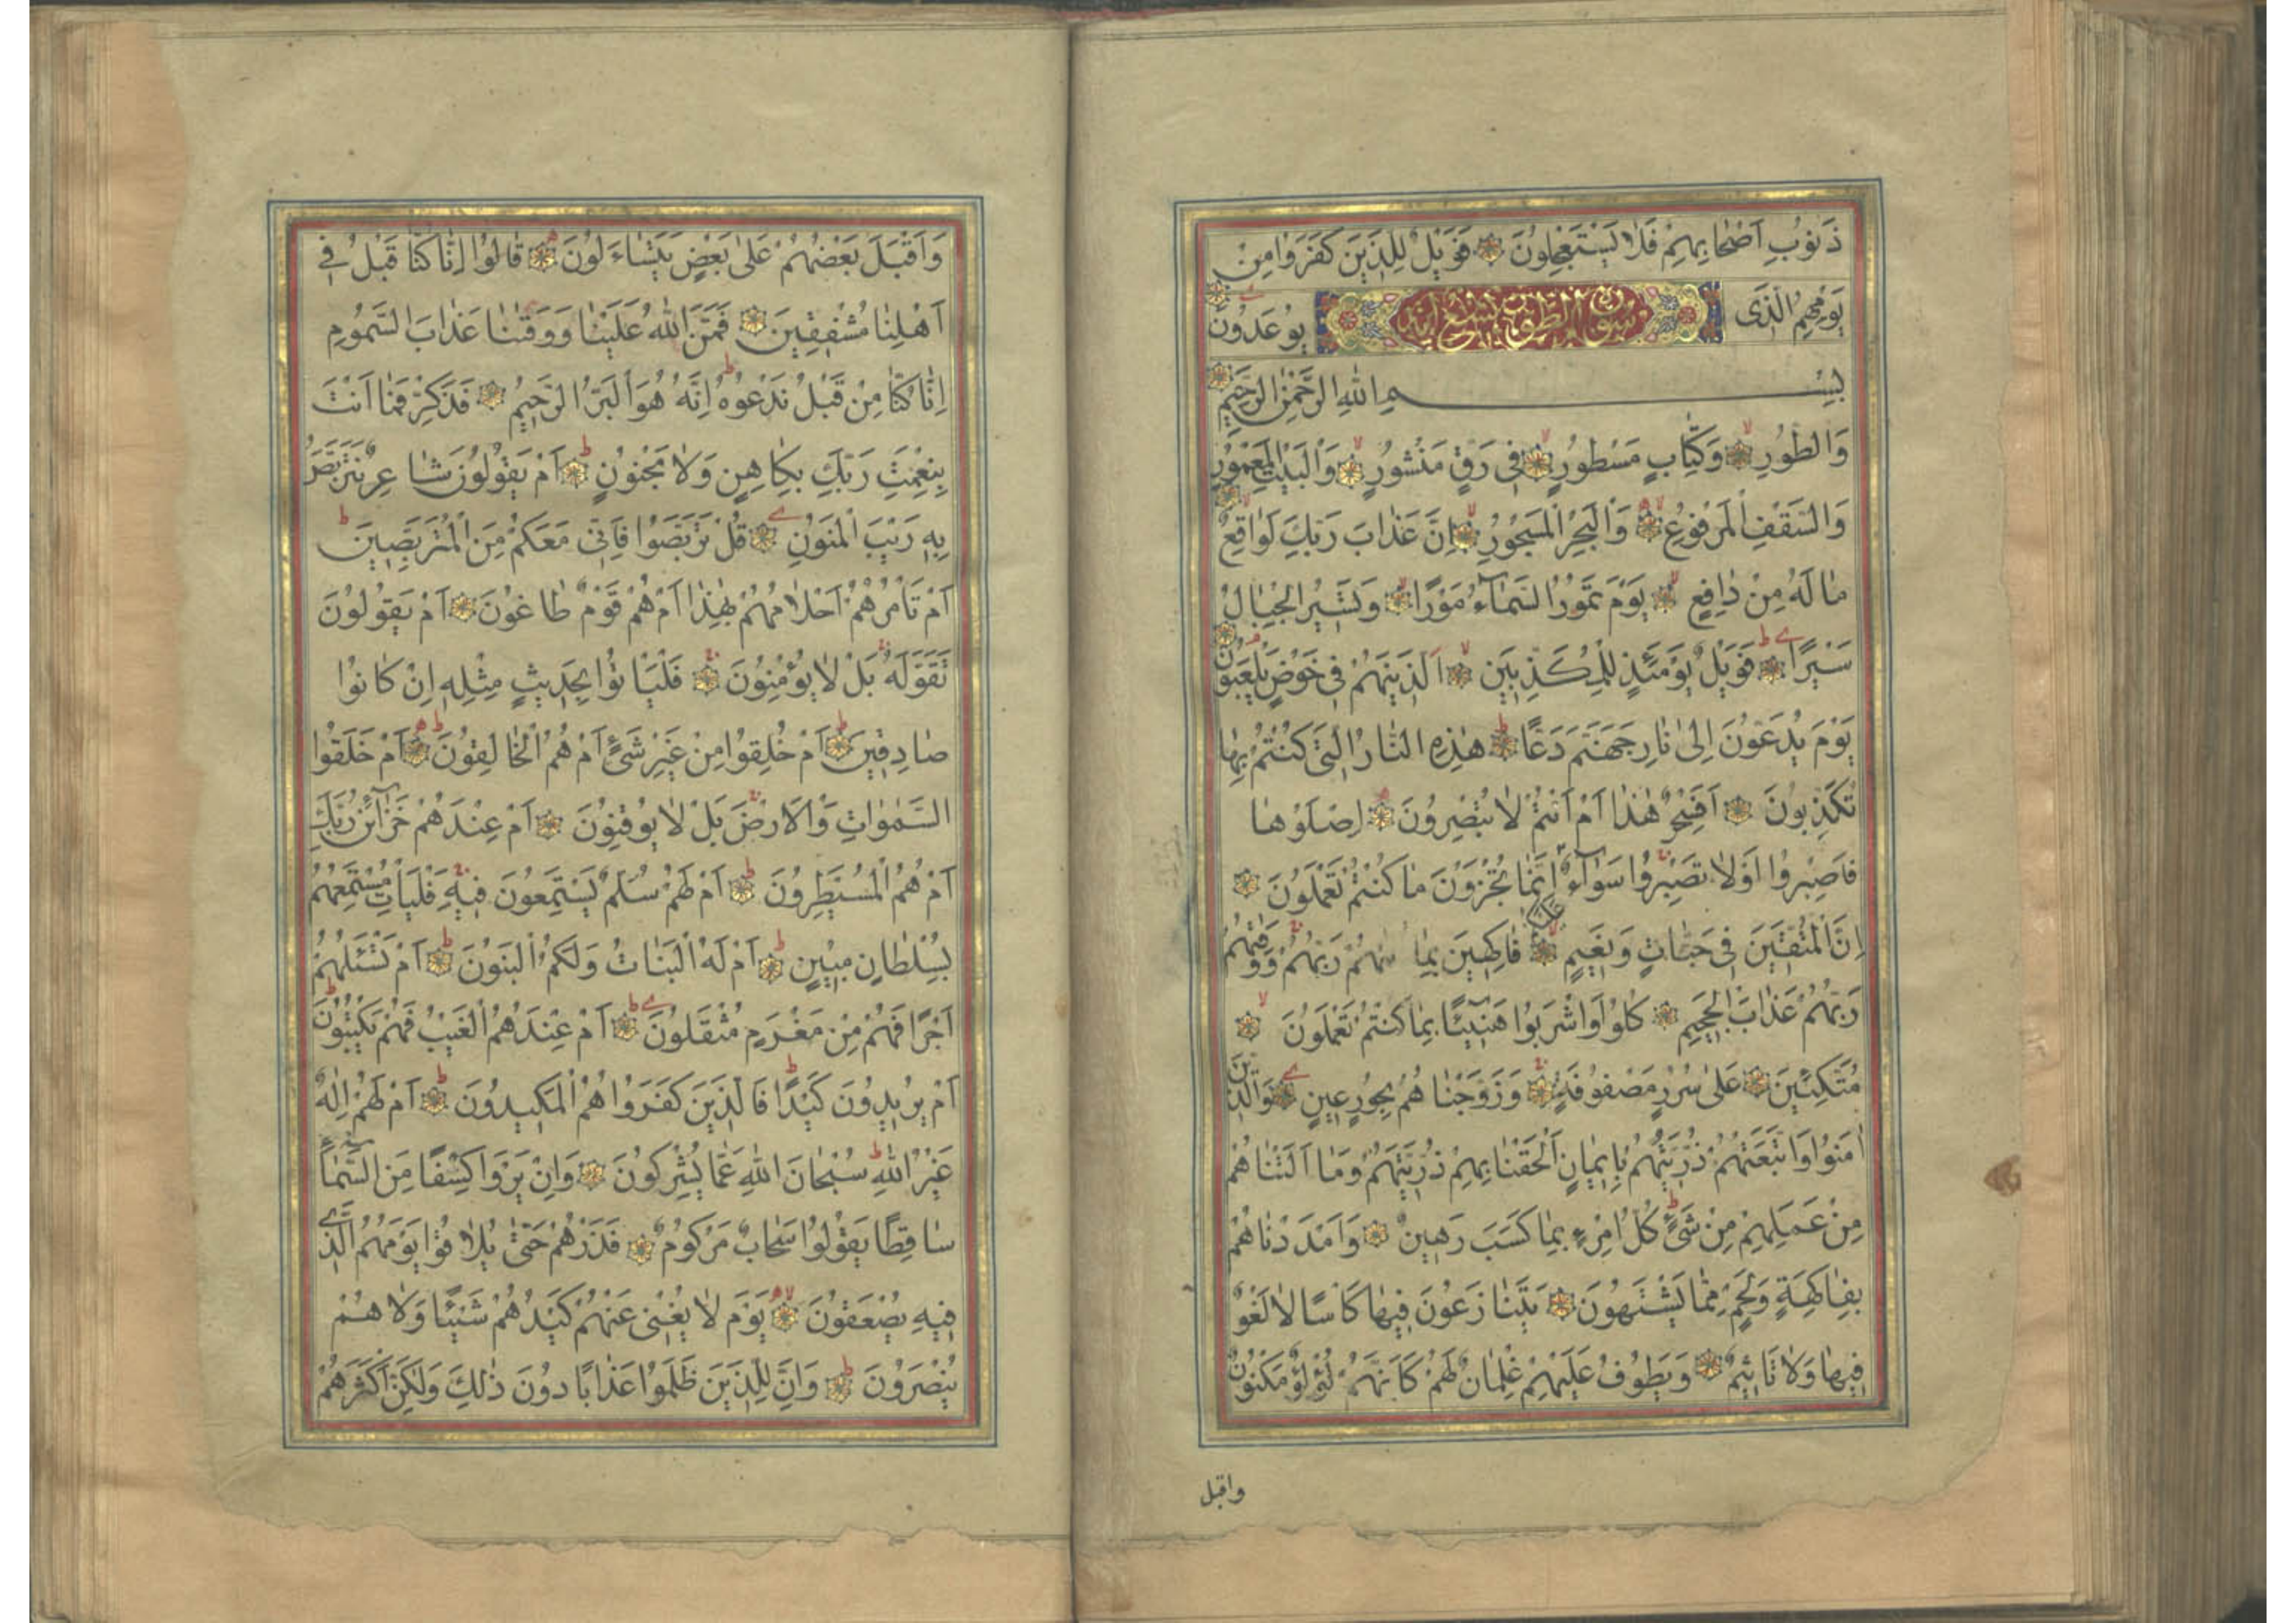 ذَنُوبِ اَصْحَابِهِمْ فَلَا يَسْتَعْجِلُونَ فَوَيْلٌ لِلَّذِينَ كَفَرُوا مِنْ
يَوْمِهِمُ الَّذِى يُوعَدُونَ
بِسْمِ اللهِ الرَّحْمٰنِ الرَّحِيمِ
وَالطُّورِ وَكِتَابٍ مَسْطُورٍ فِى رَقٍّ مَنْشُورٍ وَالْبَيْتِ الْمَعْمُورِ
وَالسَّقْفِ الْمَرْفُوعِ وَالْبَحْرِ الْمَسْجُورِ اِنَّ عَذَابَ رَبِّكَ لَوَاقِعٌ
مَا لَهُ مِنْ دَافِعٍ يَوْمَ تَمُورُ السَّمَآءُ مَوْرًا وَتَسِيرُ الْجِبَالُ
سَيْرًا فَوَيْلٌ يَوْمَئِذٍ لِلْمُكَذِّبِينَ اَلَّذِينَ هُمْ فِى خَوْضٍ يَلْعَبُونَ
يَوْمَ يُدَعُّونَ اِلٰى نَارِ جَهَنَّمَ دَعًّا هٰذِهِ النَّارُ الَّتِى كُنْتُمْ بِهَا
تُكَذِّبُونَ اَفَسِحْرٌ هٰذَا اَمْ اَنْتُمْ لَا تُبْصِرُونَ اِصْلَوْهَا
فَاصْبِرُوا اَوْ لَا تَصْبِرُوا سَوَآءٌ اِنَّمَا تُجْزَوْنَ مَا كُنْتُمْ تَعْمَلُونَ
اِنَّ الْمُتَّقِينَ فِى جَنَّاتٍ وَنَعِيمٍ فَاكِهِينَ بِمَا رَبُّهُمْ وَوَقٰهُمْ
رَبُّهُمْ عَذَابَ الْجَحِيمِ كُلُوا وَاشْرَبُوا هَنِيئًا بِمَا كُنْتُمْ تَعْمَلُونَ
مُتَّكِئِينَ عَلٰى سُرُرٍ مَصْفُوفَةٍ وَزَوَّجْنَاهُمْ بِحُورٍ عِينٍ وَالَّذِينَ
اٰمَنُوا وَاتَّبَعَتْهُمْ ذُرِّيَّتُهُمْ بِاِيمَانٍ اَلْحَقْنَا بِهِمْ ذُرِّيَّتَهُمْ وَمَا اَلَتْنَاهُمْ
مِنْ عَمَلِهِمْ مِنْ شَىْءٍ كُلُّ امْرِءٍ بِمَا كَسَبَ رَهِينٌ وَاَمْدَدْنَاهُمْ
بِفَاكِهَةٍ وَلَحْمٍ مِمَّا يَشْتَهُونَ يَتَنَازَعُونَ فِيهَا كَاْسًا لَا لَغْوٌ
فِيهَا وَلَا تَاْثِيمٌ وَيَطُوفُ عَلَيْهِمْ غِلْمَانٌ لَهُمْ كَاَنَّهُمْ لُؤْلُؤٌ مَكْنُونٌ
واقبل
وَاَقْبَلَ بَعْضُهُمْ عَلٰى بَعْضٍ يَتَسَاءَلُونَ قَالُوا اِنَّا كُنَّا قَبْلُ فِى
اَهْلِنَا مُشْفِقِينَ فَمَنَّ اللهُ عَلَيْنَا وَوَقٰنَا عَذَابَ السَّمُومِ
اِنَّا كُنَّا مِنْ قَبْلُ نَدْعُوهُ اِنَّهُ هُوَ الْبَرُّ الرَّحِيمُ فَذَكِّرْ فَمَا اَنْتَ
بِنِعْمَتِ رَبِّكَ بِكَاهِنٍ وَلَا مَجْنُونٍ اَمْ يَقُولُونَ شَاعِرٌ نَتَرَبَّصُ
بِهِ رَيْبَ الْمَنُونِ قُلْ تَرَبَّصُوا فَاِنِّى مَعَكُمْ مِنَ الْمُتَرَبِّصِينَ
اَمْ تَاْمُرُهُمْ اَحْلَامُهُمْ بِهٰذَا اَمْ هُمْ قَوْمٌ طَاغُونَ اَمْ يَقُولُونَ
تَقَوَّلَهُ بَلْ لَا يُؤْمِنُونَ فَلْيَاْتُوا بِحَدِيثٍ مِثْلِهِ اِنْ كَانُوا
صَادِقِينَ اَمْ خُلِقُوا مِنْ غَيْرِ شَىْءٍ اَمْ هُمُ الْخَالِقُونَ اَمْ خَلَقُوا
السَّمٰوَاتِ وَالْاَرْضَ بَلْ لَا يُوقِنُونَ اَمْ عِنْدَهُمْ خَزَآئِنُ رَبِّكَ
اَمْ هُمُ الْمُسَيْطِرُونَ اَمْ لَهُمْ سُلَّمٌ يَسْتَمِعُونَ فِيهِ فَلْيَاْتِ مُسْتَمِعُهُمْ
بِسُلْطَانٍ مُبِينٍ اَمْ لَهُ الْبَنَاتُ وَلَكُمُ الْبَنُونَ اَمْ تَسْئَلُهُمْ
اَجْرًا فَهُمْ مِنْ مَغْرَمٍ مُثْقَلُونَ اَمْ عِنْدَهُمُ الْغَيْبُ فَهُمْ يَكْتُبُونَ
اَمْ يُرِيدُونَ كَيْدًا فَالَّذِينَ كَفَرُوا هُمُ الْمَكِيدُونَ اَمْ لَهُمْ اِلٰهٌ
غَيْرُ اللهِ سُبْحَانَ اللهِ عَمَّا يُشْرِكُونَ وَاِنْ يَرَوْا كِسْفًا مِنَ السَّمَآءِ
سَاقِطًا يَقُولُوا سَحَابٌ مَرْكُومٌ فَذَرْهُمْ حَتّٰى يُلَاقُوا يَوْمَهُمُ الَّذِى
فِيهِ يُصْعَقُونَ يَوْمَ لَا يُغْنِى عَنْهُمْ كَيْدُهُمْ شَيْئًا وَلَا هُمْ
يُنْصَرُونَ وَاِنَّ لِلَّذِينَ ظَلَمُوا عَذَابًا دُونَ ذٰلِكَ وَلٰكِنَّ اَكْثَرَهُمْ